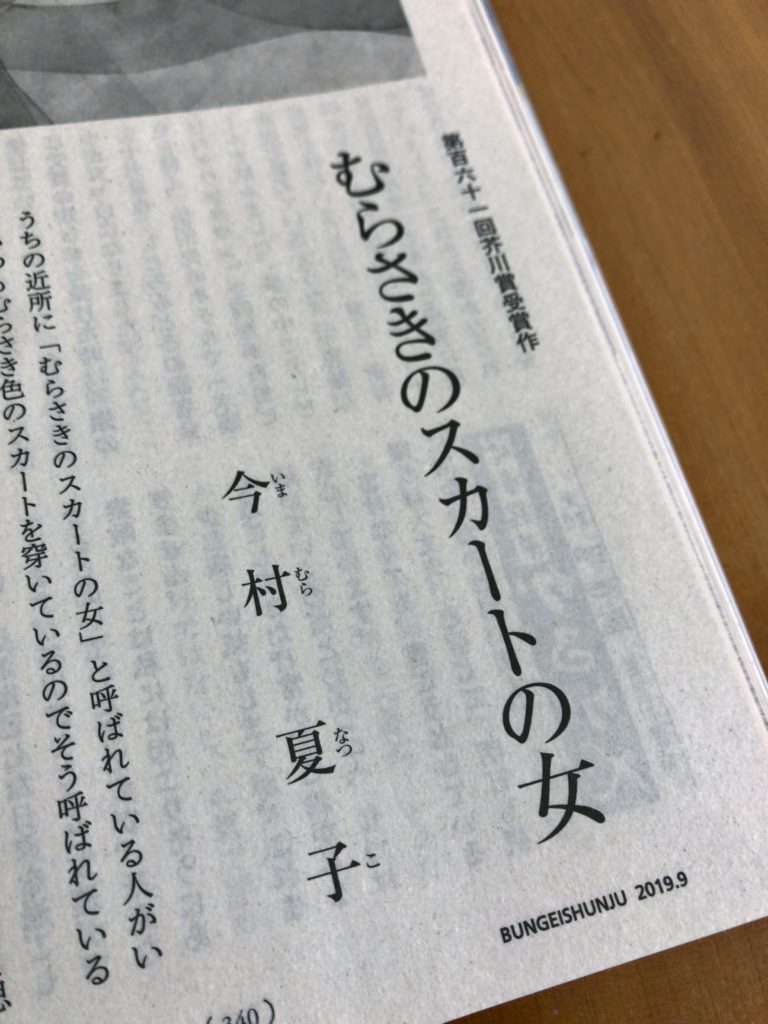 第百六十一回芥川賞受賞作
むらさきのスカートの女
今村夏子
いまむらなつこ
うちの近所に「むらさきのスカートの女」と呼ばれている人がい
むらさき色のスカートを穿いているのでそう呼ばれている
BUNGEISHUNJU 2019.9
(340)